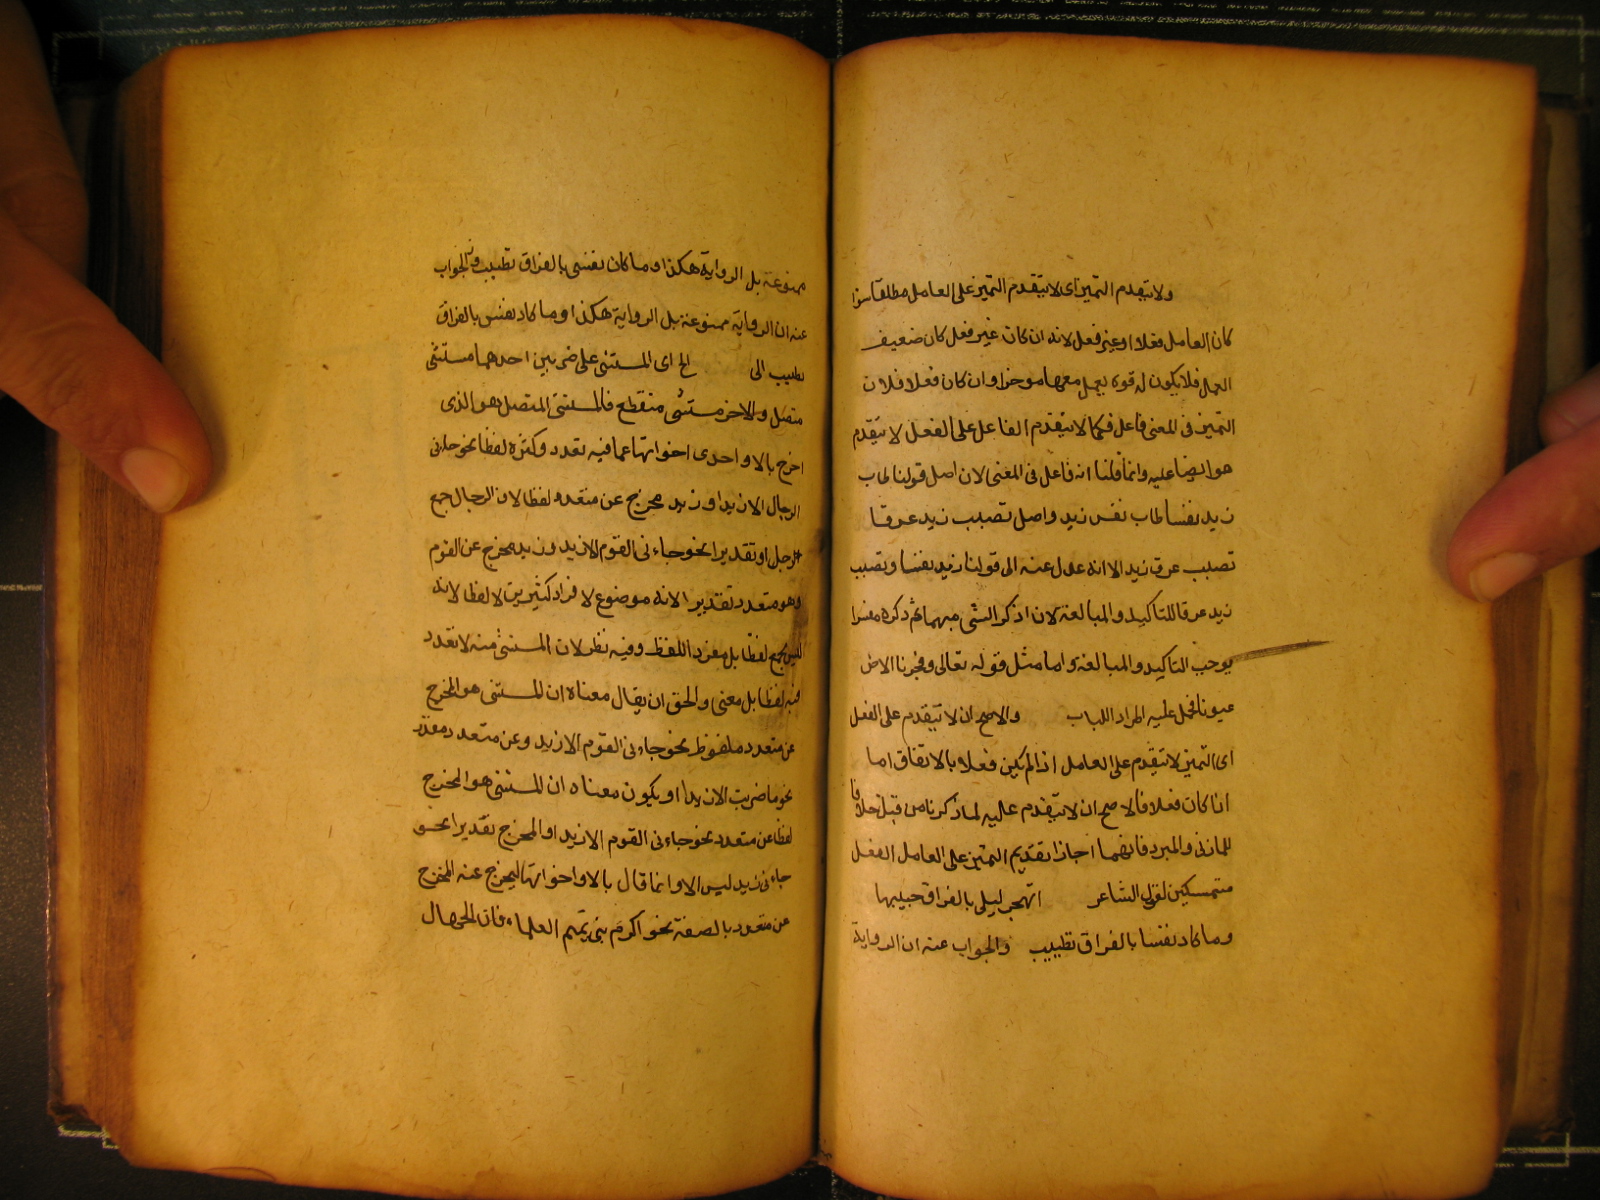 ولا يتقدم التميز اى لا يتقدم التميز على العامل مطلقا سوا
كان العامل فعلا او غير فعل لانه ان كان غير فعل كان ضعيف
العمل فلا يكون له قوة يعمل معها موخرا وان كان فعلا فلان
التميز فى المعنى فاعل فكما لا يتقدم الفاعل على الفعل لا يتقدم
هو ايضا عليه وانما قلنا انه فاعل فى المعنى لان اصل قولنا طاب
زيد نفسا طاب نفس زيد واصل تصبب زيد عرقا
تصبب عرق زيد الا انه عدل عنه الى قولنا زيد نفسا وتصبب
زيد عرقا للتاكيد والمبالغة لان اذ كر الشى مبهما ثم ذكره مفسرا
يوجب التاكيد والمبالغة واما مثل قوله تعالى وفجرنا الارض
عيونا فحمل عليه المراد اللباب والاصح ان لا يتقدم على الفعل
اى التميز لا يتقدم على العامل اذا لم يكن فعلا بالاتفاق اما
اذا كان فعلا فالاصح ان لا يتقدم عليه لما ذكرنا من قبل خلافا
للمازنى والمبرد فانهما اجازا تقديم التميز على العامل الفعل
متمسكين لقول الشاعر اتهجر ليلى بالفراق حبيبها
وما كاد نفسا بالفراق تطيب والجواب عنه ان الرواية
ممنوعة بل الرواية هكذا وما كان نفسى بالفراق تطيب والجواب
عنه ان الرواية ممنوعة بل الرواية هكذا وما كاد نفس بالفراق
تطيب الى الخ اى المستثنى على ضربين احدهما مستثنى
متصل والاخر مستثنى منقطع فالمستثنى المتصل هو الذى
اخرج بالا واحدى اخواتها عما فيه تعدد وكثرة لفظا نحو جاءنى
الرجال الا زيدا وزيد مخرج عن متعدد لفظا لان الرجال جمع
الرجل او تقديرا نحو جاءنى القوم الا زيد وزيد مخرج عن القوم
وهو متعدد تقديرا لانه موضوع لافراد كثيرين لا لفظا لانه
ليس بجمع لفظا بل مفرد اللفظ وفيه نظر لان المستثنى منه لا تعدد
فيه لفظا بل معنى والحق ان يقال معناه ان المستثنى هو المخرج
عن متعدد ملفوظ نحو جاءنى القوم الا زيد وعن متعدد مقدر
نحو ما ضربت الا زيدا او يكون معناه ان المستثنى هو المخرج
لفظا عن متعدد نحو جاءنى القوم الا زيد او المخرج تقديرا نحو
جاءنى زيد ليس الا وانما قال بالا واخواتها ليخرج عنه المخرج
عن متعدد بالصفة نحو اكرم بنى تميم العلماء فان الجهال